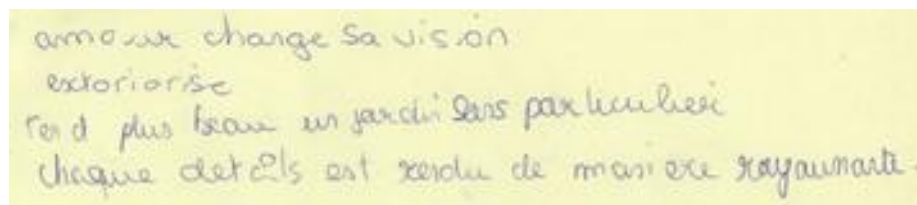 amour change sa vision
extoriorise
rend plus beau un jardin sans particulier
chaque details est rendu de maniere rayaunante.